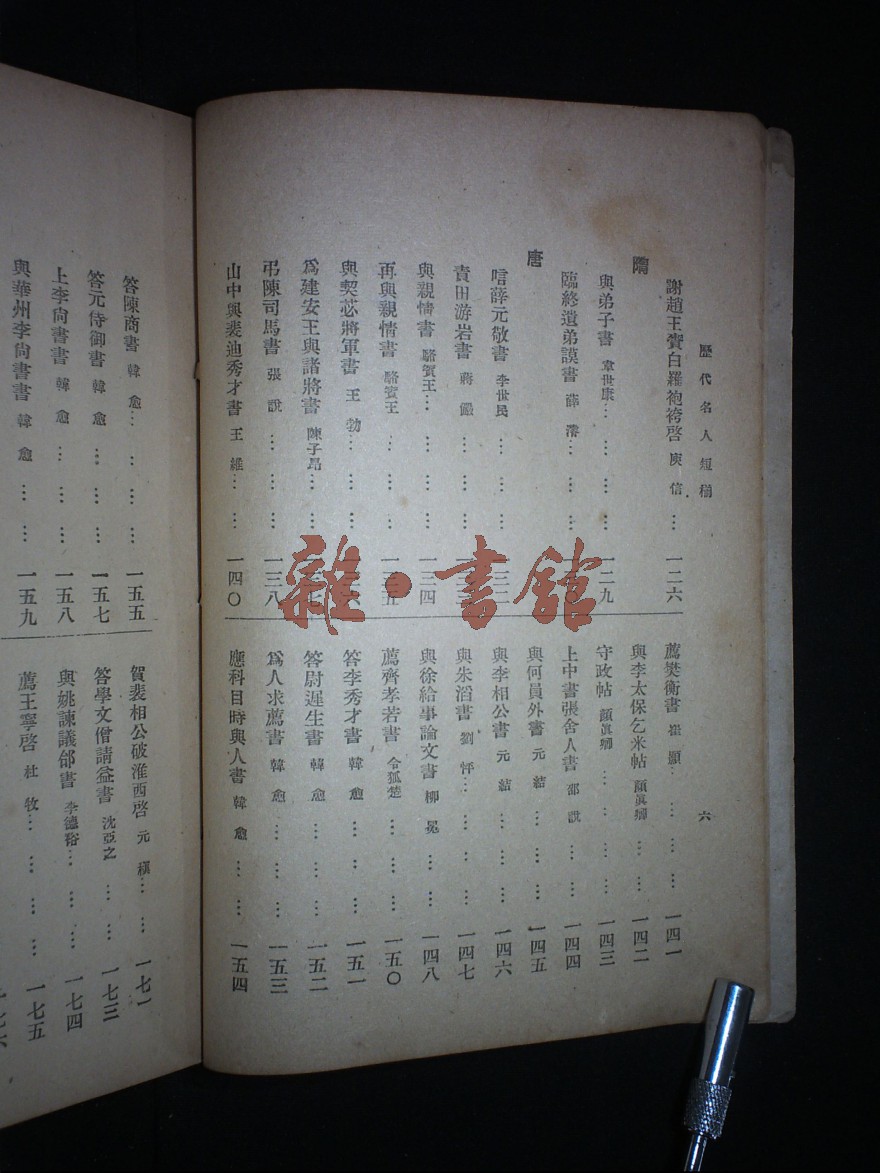 歷代名人短牋
六
謝趙王賚白羅袍袴啓 庾信… 一二六
隋
與弟子書 韋世康……… 一二九
臨終遺弟謨書 薛濬………
唐
唁薛元敬書 李世民………
責田游岩書 蔣儼………
與親情書 駱賓王……… 一三四
再與親情書 駱賓王………
與契苾將軍書 王勃………
爲建安王與諸將書 陳子昂……
弔陳司馬書 張說……… 一三八
山中與裴迪秀才書 王維…… 一四〇
薦樊衡書 崔顥………… 一四一
與李太保乞米帖 顏眞卿…… 一四二
守政帖 顏眞卿………… 一四三
上中書張舍人書 邵說…… 一四四
與何員外書 元結……… 一四五
與李相公書 元結……… 一四六
與朱滔書 劉怦………… 一四七
與徐給事論文書 柳冕…… 一四八
薦齊孝若書 令狐楚……… 一五〇
答李秀才書 韓愈……… 一五一
答尉遲生書 韓愈……… 一五二
爲人求薦書 韓愈……… 一五三
應科目時與人書 韓愈…… 一五四
答陳商書 韓愈……… 一五五
答元侍御書 韓愈……… 一五七
上李尙書書 韓愈……… 一五八
與華州李尙書書 韓愈…… 一五九
賀裴相公破淮西啓 元稹…… 一七一
答學文僧請益書 沈亞之…… 一七三
與姚諫議郃書 李德裕……… 一七四
薦王寧啓 杜牧………… 一七五
一七六
雜·書館